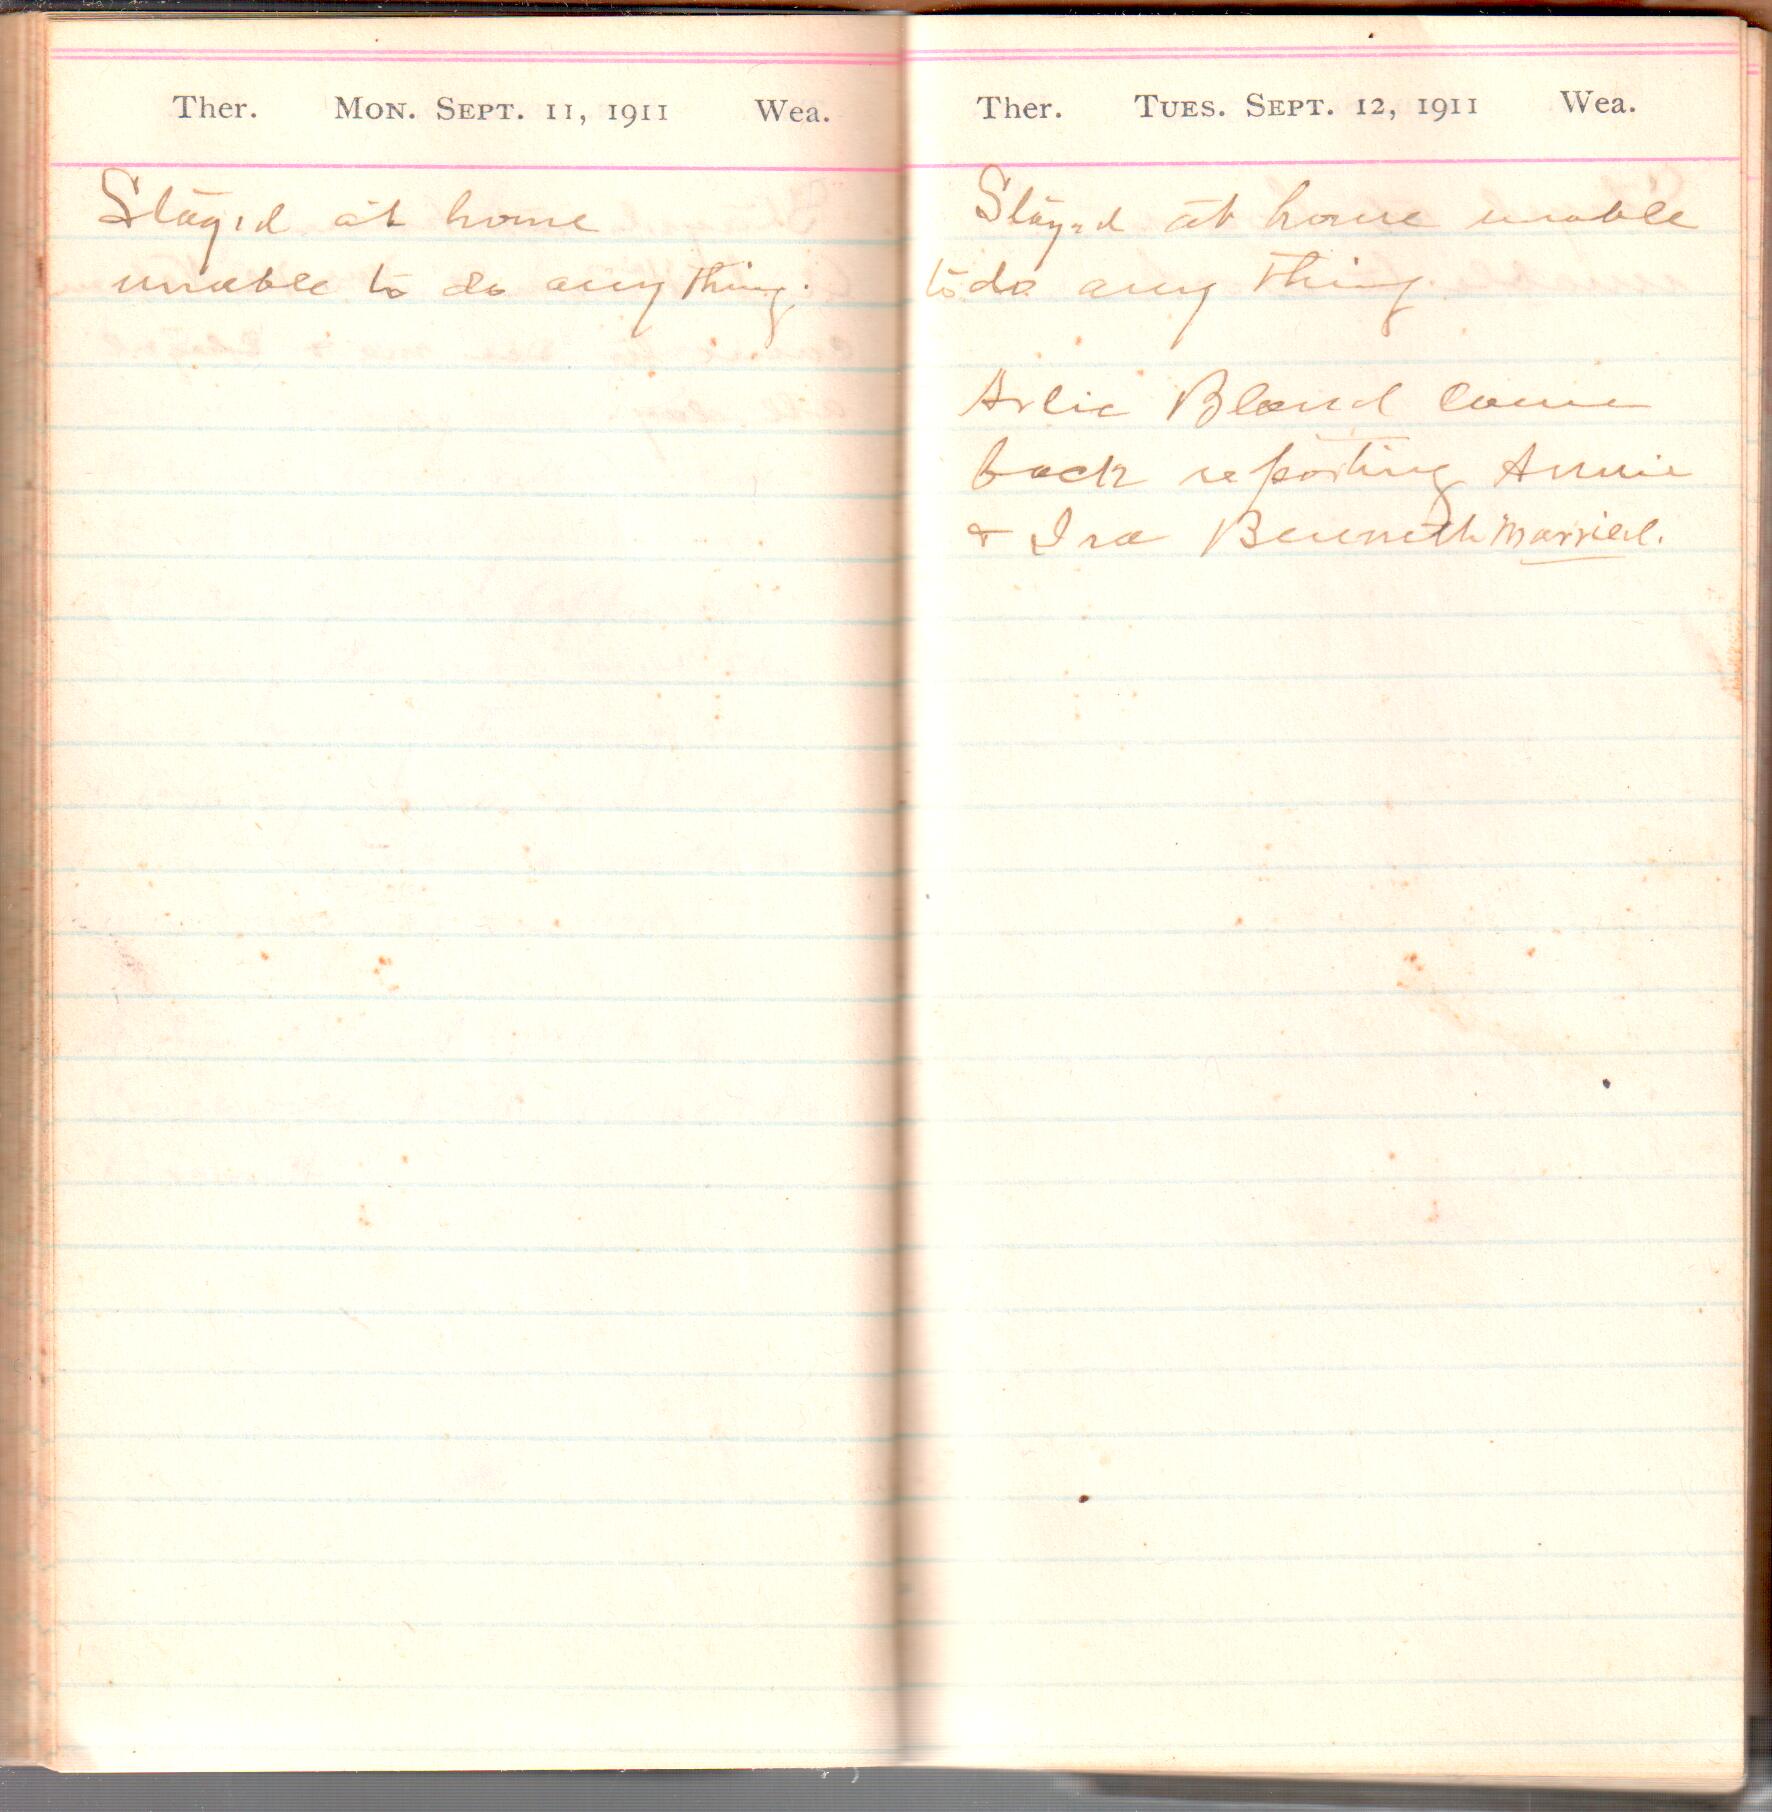 Ther. Mon. Sept. 11, 1911 Wea.
Stayed at home
unable to do any thing.
Ther. Tues. Sept. 12, 1911 Wea.
Stayed at home unable
to do any thing.
Arlie Bland came
back reporting Annie
& Ira Bennett married.